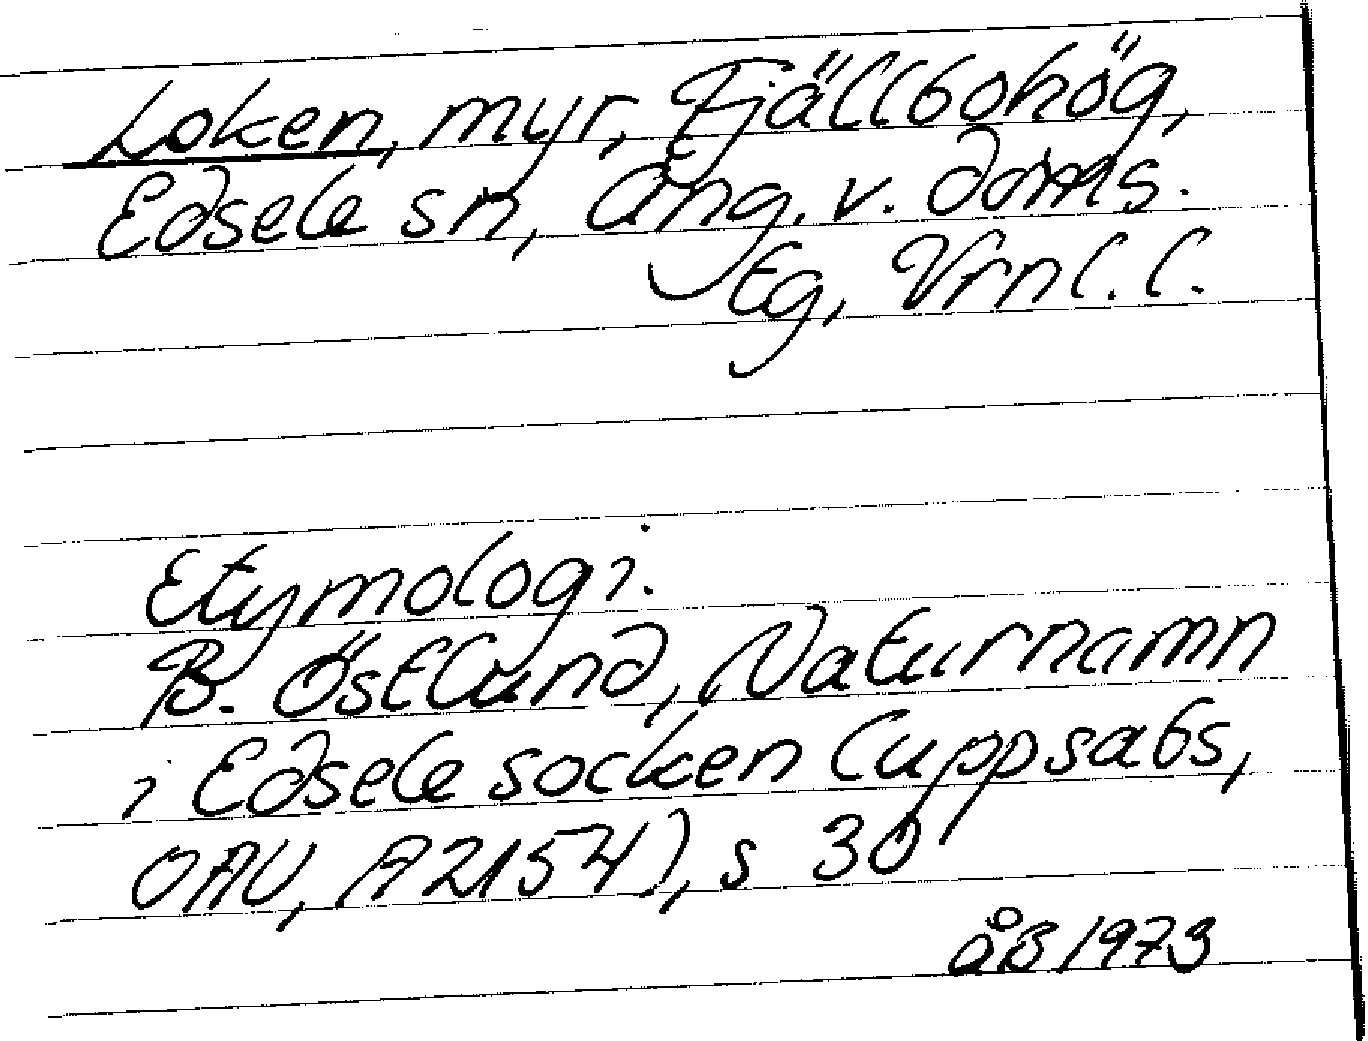 Loken, myr, Fjällbohög,
Edsele sn, Ång. v. doms.
Eg, Vrnl. l.
Etymologi.
B. Östlund, Naturnamn
i Edsele socken (uppsats,
OAU, A2154), s 30
åB 1973